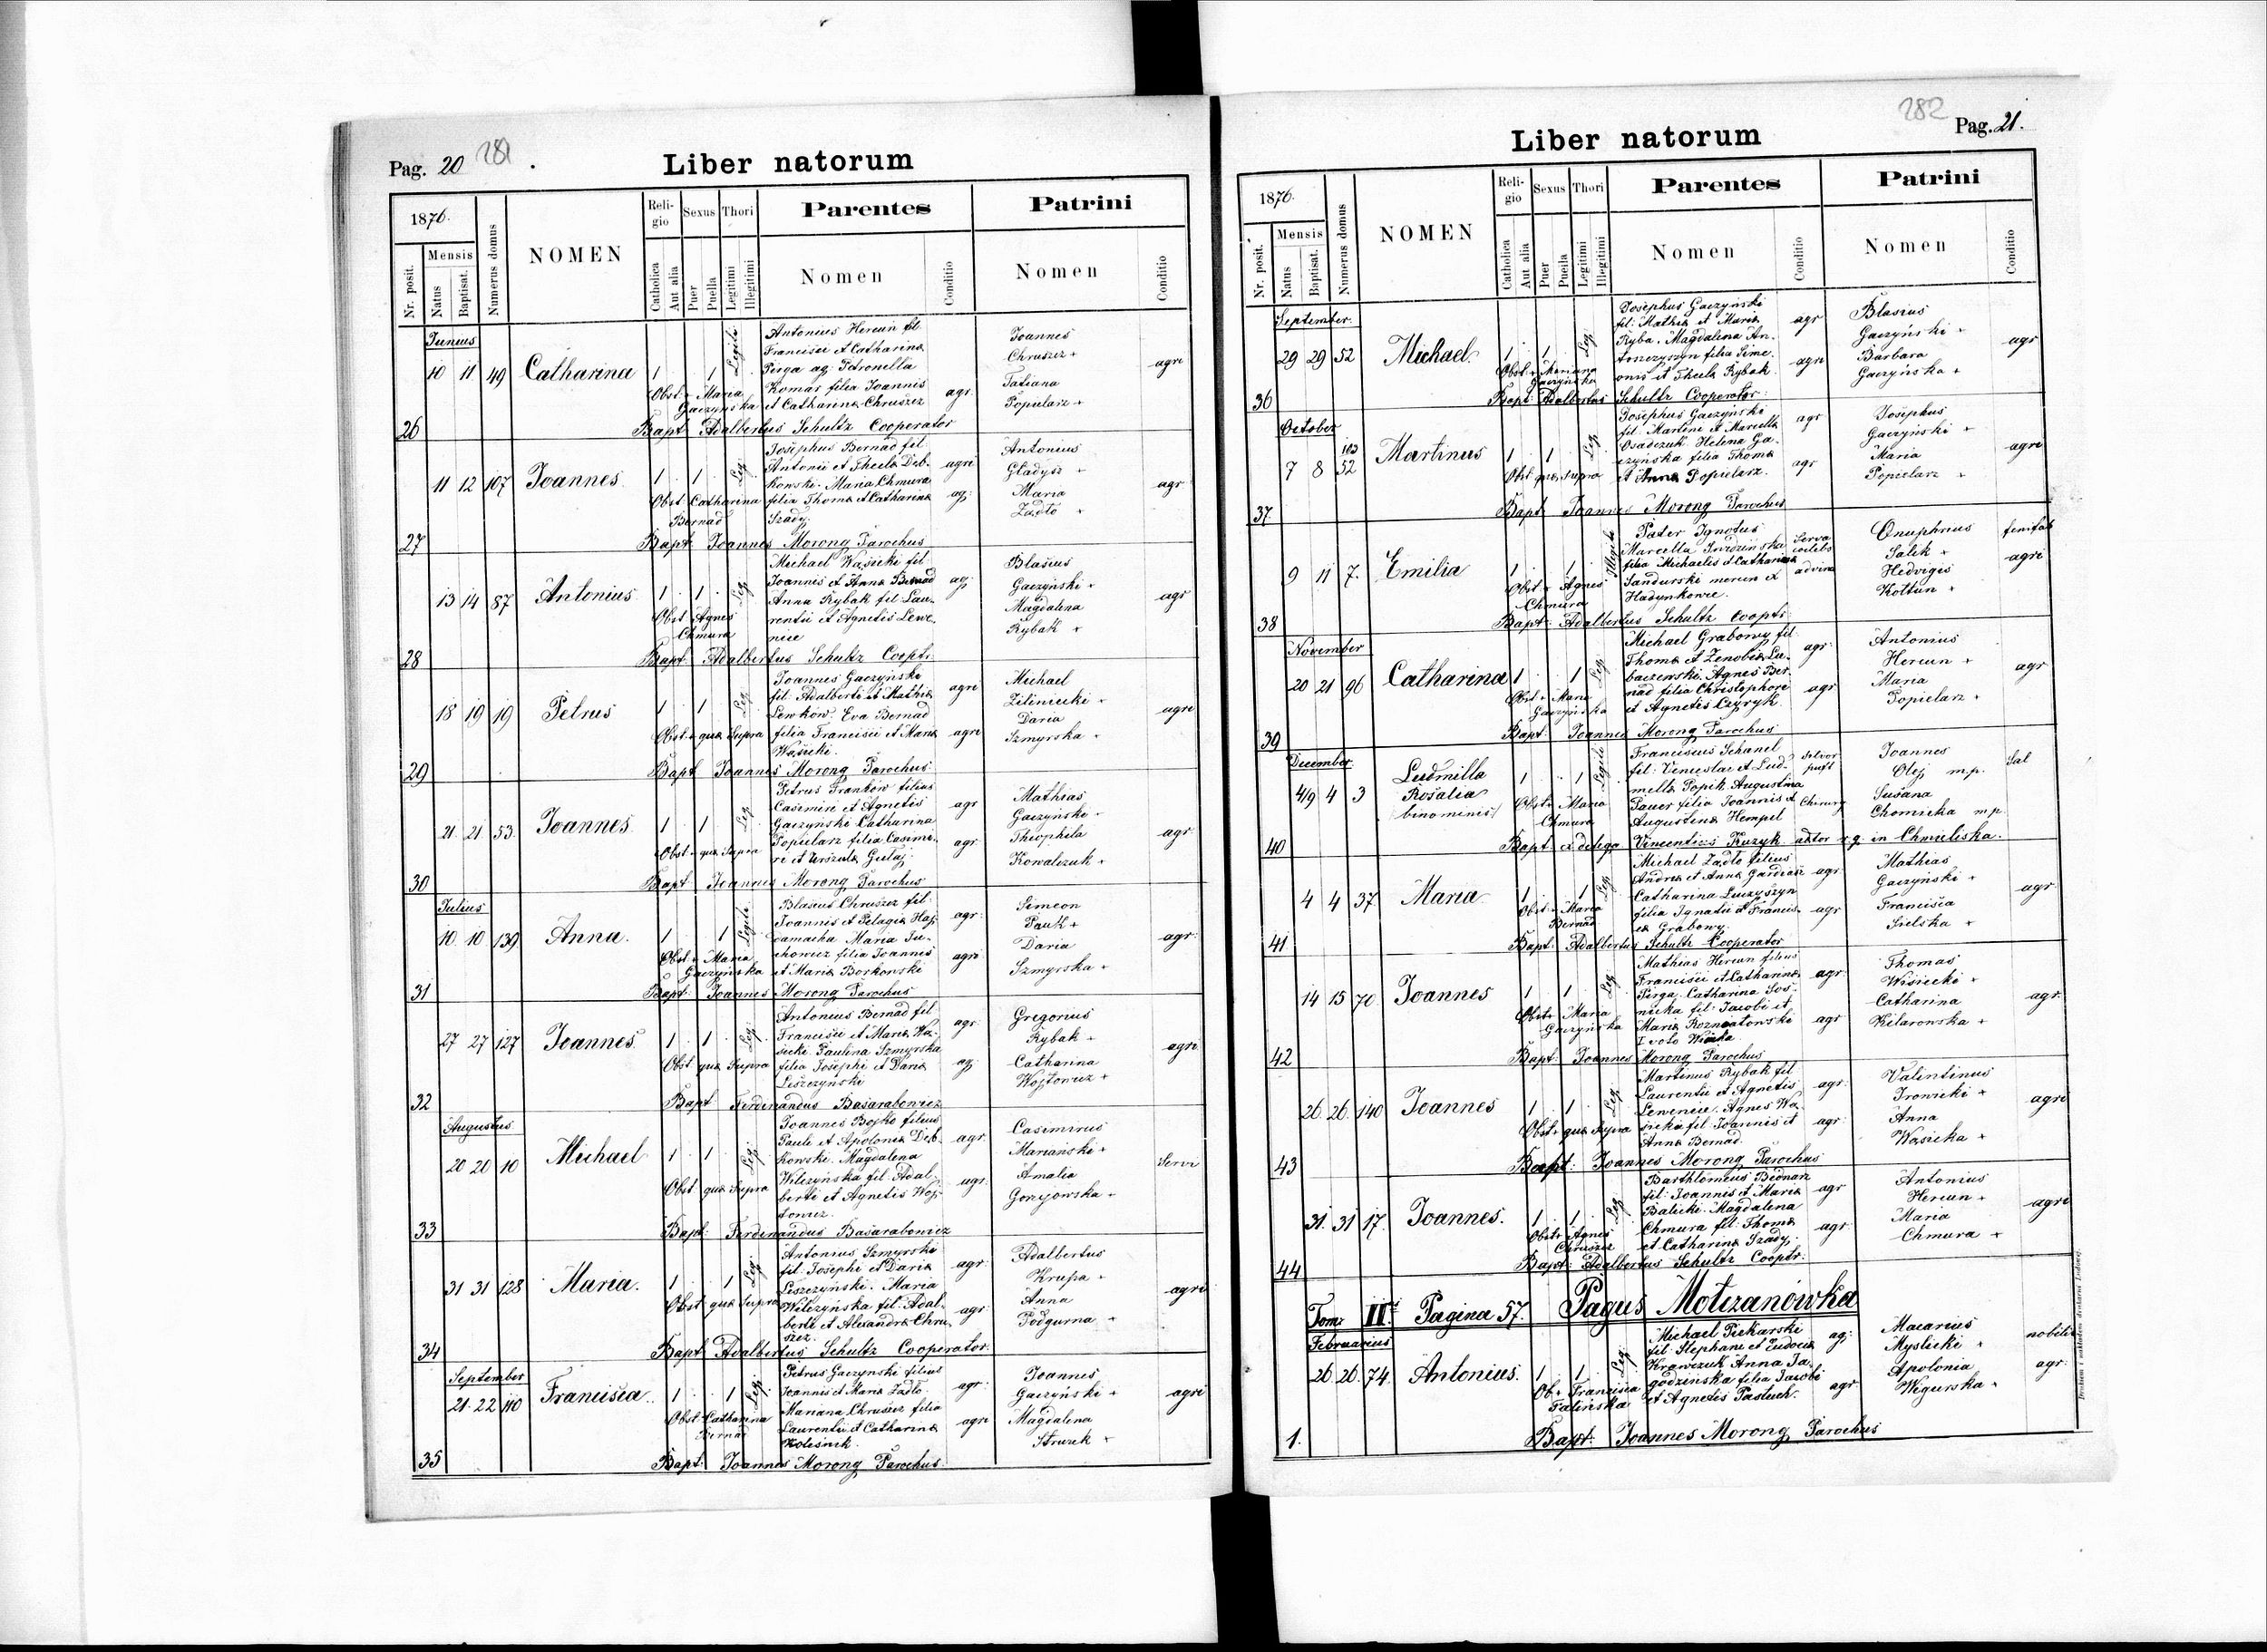 Pag. 20 281
Liber natorum
1876.
Nr. posit.
Mensis
Natus
Baptisat.
Numerus domus
NOMEN
Religio
Catholica
Aut alia
Sexus
Puer
Puella
Thori
Legitimi
Illegitimi
Parentes
Nomen
Conditio
Patrini
Nomen
Conditio
Junius
26
10 11 49 Catharina 1 1
Obst. Maria
Gaczyńska
Antonius Hercun fil
Francisci et Catharina
Pirga ag: Petronella
Komar filia Joannis
et Catharina Chruszcz
agr.
Joannes
Chruszcz +
Tatiana
Popielarz +
agri
Bapt Adalbertus Schultz Cooperator
27
11 12 107 Joannes 1 1 Leg
Obst Catharina
Bernad
Josephus Bernad fil
Antonii et Thecla Deb-
kowski. Maria Chmura
filia Thoma et Catharina
Szady.
agri
ag:
Antonius
Gładysz +
Maria
Zadło +
agr
Bapt Joannes Morong Parochus
28
13 14 87 Antonius 1 1 Leg
Obst Agnes
Chmura
Michael Wasicki fil
Joannis et Anna Bernad
Anna Rybak fil Lau-
rentii et Agnetis Lewe-
nice
ag:
Blasius
Gaczyński +
Magdalena
Rybak +
agr
Bapt. Adalbertus Schultz Cooptr.
29
18 19 19 Petrus 1 1 Leg
Obst. qua Supra
Joannes Gaczyński
fil: Adalberti et Mathia
Lewków. Eva Bernad
filia Francisci et Maria
Wasicki.
agri
agri
Michael
Daria
Szmyrska +
agri
Bapt Joannes Morong Parochus
30
21 21 53. Joannes 1 1 Leg
Obst. qua Supra
Petrus Franków filius
Casimiri et Agnetis
Gaczyński Catharina
Popielarz filia Casimi-
ri et Urszula
agr
agr.
Mathias
Gaczyński
Theophila
Kowalczuk +
agr.
Bapt Joannes Morong Parochus
Julius
31
10. 10 139 Anna. 1 1
Obst. Maria
Gaczyńska
Blasius Chruszcz fil:
Joannis et Pelagia Haj-
damacha Maria Ju-
chowicz filia Joannis
et Maria Borkowski
agr:
agri
Simeon
Pauk +
Daria
Szmyrska +
agr:
Bapt: Joannes Morong Parochus
32
27 27 127 Joannes 1 1 Leg
Obst qua Supra
Antonius Bernad fil
Francisci et Maria Wa-
sicki Paulina Szmyrska
filia Josephi et Daria
Leszczyński
agr:
ag:
Gregorius
Rybak +
Catharina
Wojtowicz +
agri
Bapt Ferdinandus Basarabowicz
Augustus
33
20 20 10 Michael 1 1 Leg
Obst qua Supra
Joannes Bojko filius
Pauli et Apolonia Deb-
kowski. Magdalena
Wilczyńska fil. Adal-
berti et Agnetis Woj-
towicz.
agr.
agr.
Casimirus
Mariański +
Amalia
Servi
Bapt: Ferdinandus Basarabowicz
34
31 31 128 Maria. 1 1 Leg
Obst qua Supra
Antonius Szmyrski
fil: Josephi et Daria
Leszczyński. Maria
Wilczyńska fil: Adal-
berti et Alexandra Chru-
szcz.
agr:
agr:
Adalbertus
Krupa +
Anna
Podgurna +
agri
Bapt. Adalbertus Schultz Cooperator.
September
35
21 22 110 Francisca. 1 1 Leg
Obst. Catharina
Bernad
Petrus Gaczynski filius
Joannis et Maria Zadło.
Mariana Chruszcz filia
Laurentii et Catharina
Kolesnik.
agr.
agri
Joannes
Gaczyński +
Magdalena
Struzik +
agri
Bapt: Joannes Morong Parochus.
282 Pag. 21.
Liber natorum
1876.
Nr. posit.
Mensis
Natus
Baptisat.
Numerus domus
NOMEN
Religio
Catholica
Aut alia
Sexus
Puer
Puella
Thori
Legitimi
Illegitimi
Parentes
Nomen
Conditio
Patrini
Nomen
Conditio
September.
36
29 29 52 Michael 1 1 Leg
Obst. Mariana
Gaczyńska
Josephus Gaczyński
fil: Mathia et Maria
Ryba. Magdalena An-
tonczyszyn filia Sime-
onis et Thecla Rybak.
agr
agri
Blasius
Gaczyński +
Barbara
Gaczyńska +
agr
Bapt: Adalbertus Schultz Cooperator.
October
37
7 8 103 52 Martinus 1 1 Leg
Obst qua supra
Josephus Gaczyński
fil: Martini et Marcella
Osadczuk Helena Ga-
czyńska filia Thoma
et Anna Popielarz.
agr
agr
Josephus
Gaczyński +
Maria
Popielarz +
agri
Bapt Joannes Morong Parochus
38
9 11 7. Emilia 1 1
Obst. Agnes
Chmura
Pater Ignotus
Marcella
filia Michaelis et Catharina
Sandurski
Serva
Onuphrius
Salek +
Hedvigis
Kołtun +
agri
Bapt: Adalbertus Schultz Cooptr.
November
39
20 21 96 Catharina 1 1 Leg
Obst. Maria
Gaczyńska
Michael Grabowy fil
Thoma et Zenobia Lu-
baczewski. Agnes Ber-
nad filia Christophori
et Agnetis Cezryk.
agr:
agr
Antonius
Hercun +
Maria
Popielarz +
agr
Bapt. Joannes Morong Parochus
December.
40
4/9 4 3 Ludmilla
Rosalia
binominis
1 1
Obst. Maria
Chmura
Franciscus Schanel
fil: Venceslai et Lud-
mella Popik Augustina
Pauer filia Joannis et
Augustina Hempel
Chirurg
Joannes
Olej m.p.
Susana
Chomicka mp
Bapt ex delega Vincentius Kuzyk in Chmieliska.
41
4 4 37. Maria 1 1 Leg
Obst. Maria
Bernad
Michael Zadło filius
Andrea et Anna Gardiasz
Catharina Luczyszyn
filia Ignatii et Francis-
ca Grabowy.
agr
agr
Mathias
Gaczyński +
Francisca
Sielska +
agr.
Bapt: Adalbertus Schultz Cooperator
42
14 15 70 Joannes 1 1 Leg
Obst. Maria
Gaczyńska
Mathias Hercun filius
Francisci et Catharina
Pirga. Catharina Sos-
nicka fil: Jacobi et
Maria Rozniatowski
I voto
agr:
agr
Thomas
Wisiecki +
Catharina
Kilarowska +
agr.
Bapt: Joannes Morong Parochus
43
26 26. 140 Joannes 1 1 Leg
Obst. qua Supra
Martinus Rybak fil
Laurentii et Agnetis
Lewenice. Agnes Wa-
sicka fil: Joannis et
Anna Bernad.
agr:
agr:
Valintinus
Anna
Wasicka +
agri
Bapt: Joannes Morong Parochus
44
31. 31 17. Joannes. 1 1 Leg
Obst. Agnes
Chruszcz
Barthlomeus Bednarz
fil: Joannes et Maria
Balicki. Magdalena
Chmura fil: Thoma
et Catharina Szady.
agr
agr:
Antonius
Hercun +
Maria
Chmura +
agri
Bapt: Adalbertus Schultz Cooptr:
Tom: II. Pagina 57. Pagus Motczanówka
Februarius
1.
26. 26. 74. Antonius. 1 1 Leg
Ob. Francisca
Palińska
Michael Piekarski
fil: Stephani et Eudocia
Krawczuk Anna Ja-
godzińska filia Jacobi
et Agnetis Pastuch.
ag:
agr
Macarius
Myslicki +
Apolonia
Wegurska +
nobilis
agr:
Bapt: Joannes Morong Parochus